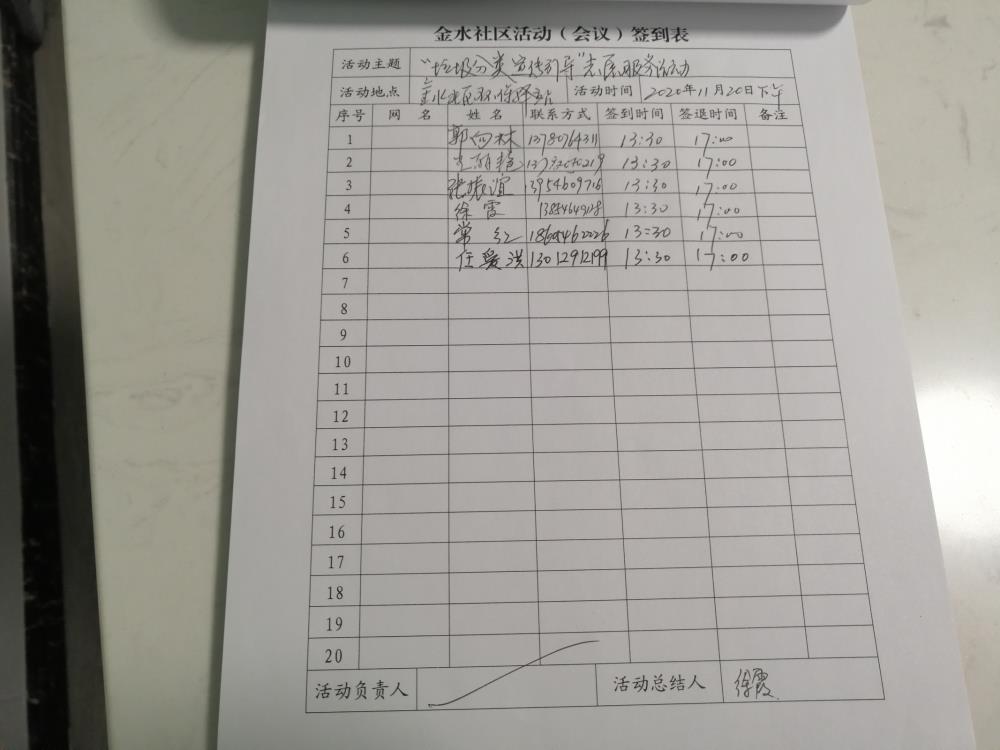 金水社区活动(会议)签到表
活动主题 "垃圾分类宣传引导"志愿服务活动
活动地点 金水社区环保驿站 活动时间 2020年11月20日下午
序号 网 名 姓 名 联系方式 签到时间 签退时间 备注
1 郭向林 13:30 17:00
2 13:30 17:00
3 张振谊 13954609716 13:30 17:00
4 徐霞 13:30 17:00
5 常红 13:30 17:00
6 任爱洪 13012912199 13:30 17:00
7
8
9
10
11
12
13
14
15
16
17
18
19
20
活动负责人 活动总结人 徐霞